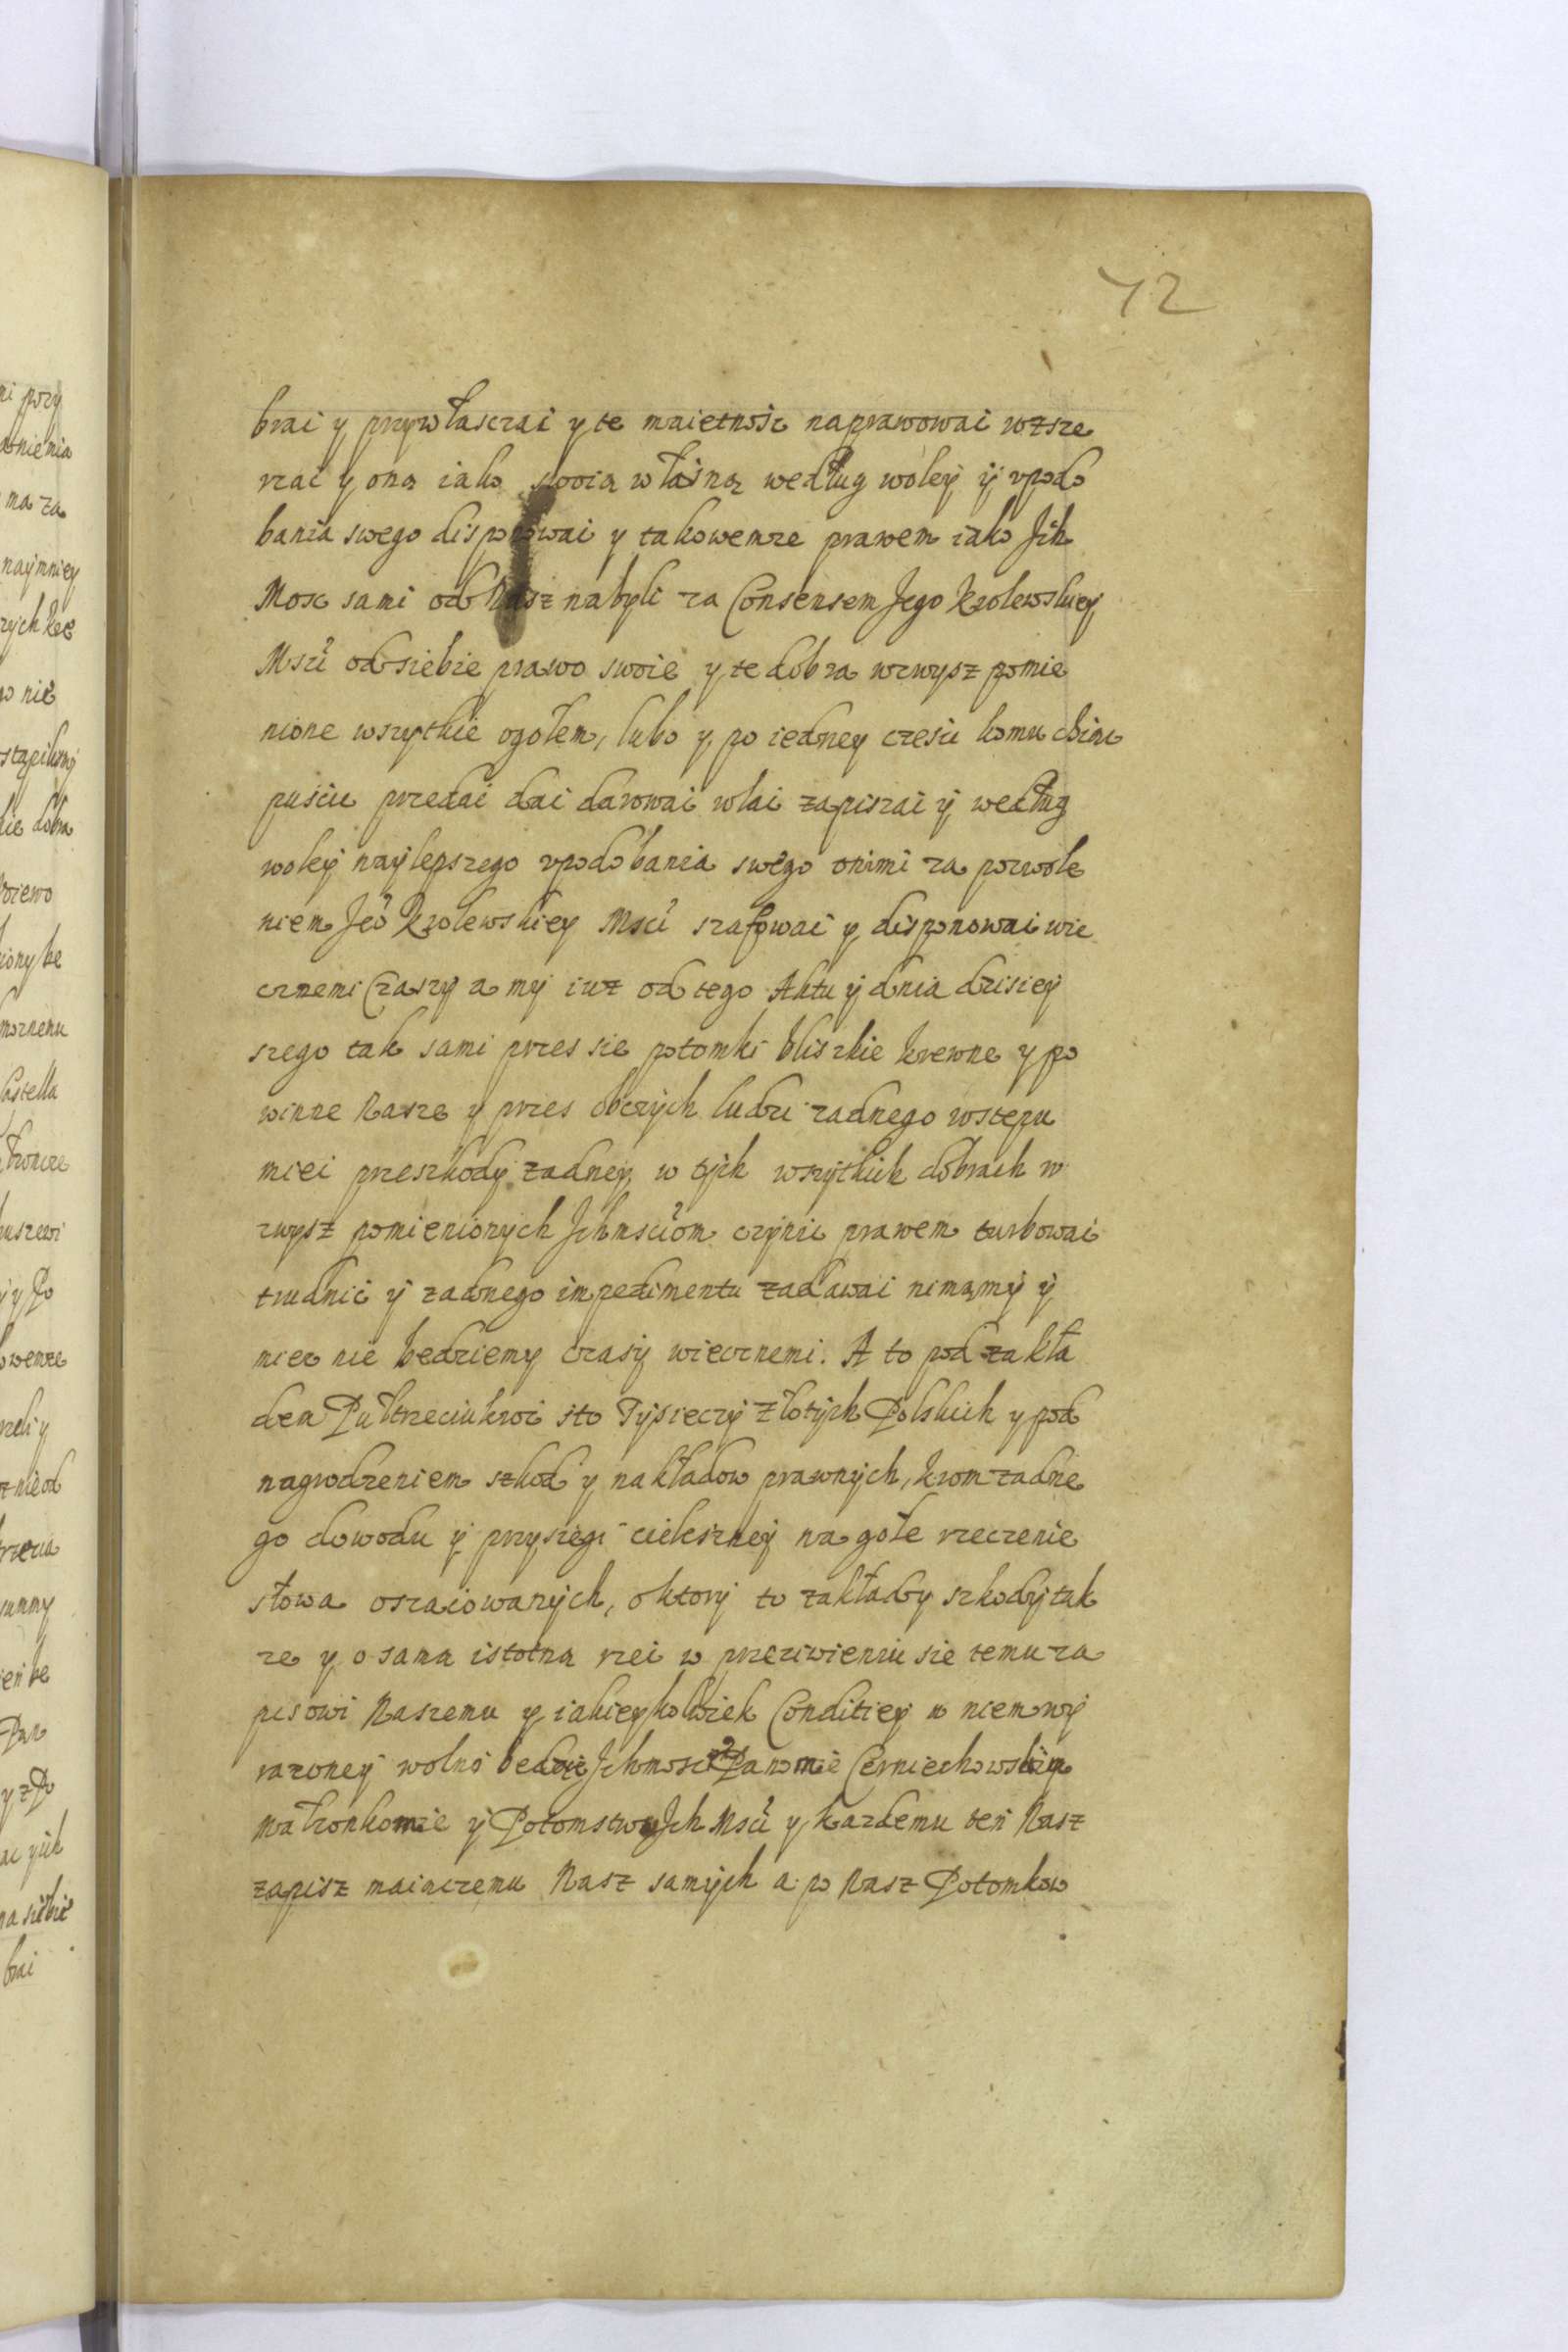 42
brać y przywłasczać y te maietnośc naprawować wzsze
rzać y oną iako swoią własną według woley ÿ vpodo
bania swego disponować y takowemze prawem iako Jch
Mosc sami od Nasz nabyli za Consensem Jego Krolewskiey
Msci od siebie prawo swoie y te dobra wzwysz pomie
nione wszytkie ogołem, lubo y po iedney czesci komu chcąc
puścić przedać dać darować wlać zapiszać ÿ według
woleÿ naylepszego vpodobania swego onimi za pozwole
niem Jeo Krolewskiey Msci szafować y disponować wie
cznemi Czaszy a my iuz od tego Aktu ÿ dnia dzisieÿ
szego tak sami przes sie potomki bliszkie krewne y po
winne Nasze y przes obczych ludzi zadnego wstepu
mieć przeszkody zadney w tÿch wszÿtkich dobrach w
zwysz pomienionych Jchmsciom czynić prawem turbować
trudnić ÿ zadnego impedimentu zadawać nimamÿ ÿ
miec nie bedziemy czasÿ wiecznemi. A to pod zakła
dem Pułtrzeciukroć sto Tysieczÿ Złotÿch Polskich y pod
nagrodzeniem szkod y nakładow prawnych, krom zadne
go dowodu ÿ przysiegi cielesneÿ na gołe rzeczenie
słowa oszaiowanÿch, o ktory to zakłady szkody tak
ze y o samą istotną rzec w przeciwieniu sie temu za
pisowi Naszemu y iakieykolwiek Conditiey w niem wÿ
razoney wolno bedzie Jchmosci Panom Cerniechowskim
Małzonkom ÿ Potomstwu Jch Msci y kazdemu ten Nasz
zapisz maiączemu Nasz samÿch a po Nasz Potomkow